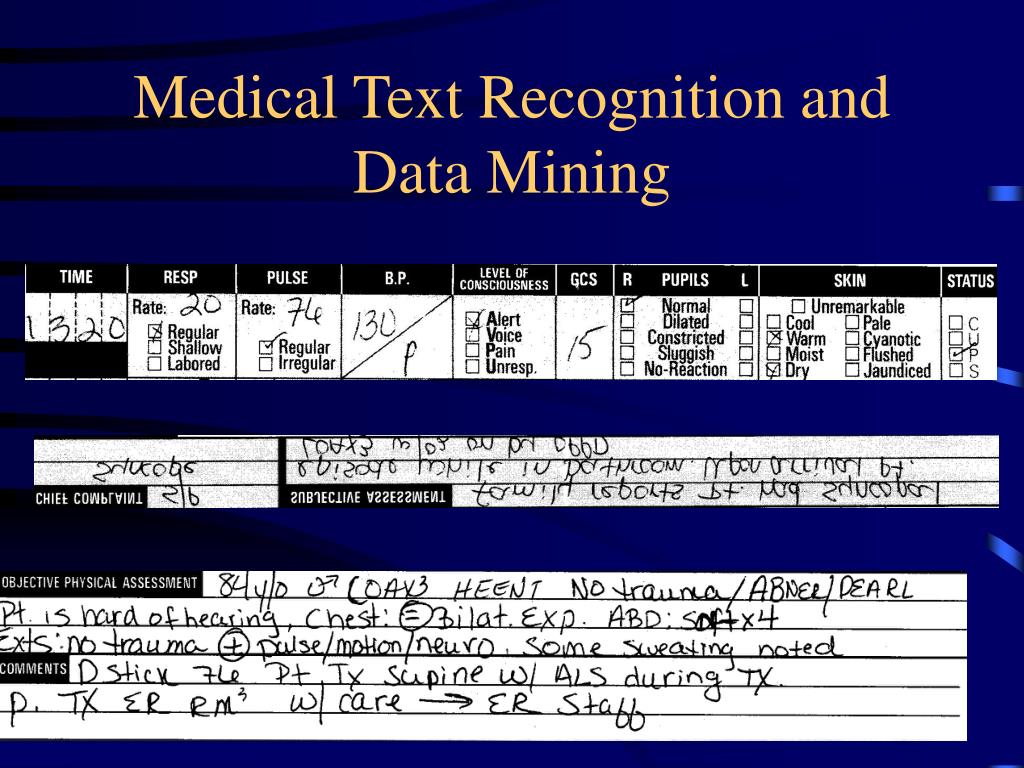 Medical Text Recognition and
Data Mining
TIME RESP PULSE B.P. LEVEL OF CONSCIOUSNESS GCS R PUPILS L SKIN STATUS
1320
Rate: 20
Regular
Shallow
Labored
Rate: 76
Regular
Irregular
130/P
Alert
Voice
Pain
Unresp.
15
Normal
Dilated
Constricted
Sluggish
No-Reaction
Unremarkable
Cool Pale
Warm Cyanotic
Moist Flushed
Dry Jaundiced
C
U
P
S
CHIEF COMPLAINT S/P SUBJECTIVE ASSESSMENT family reports pt. had syncopal
syncope episode while in bathroom. Upon arrival pt.
COAX3
OBJECTIVE PHYSICAL ASSESSMENT 84 y/o ♂ COAX3 HEENT NO trauma/ABNER/PEARL
Pt. is hard of hearing, Chest: = Bilat. Exp. ABD: soft x4
Exts: no trauma + pulse/motion/neuro. Some sweating noted
COMMENTS D Stick 76 Pt Tx Supine w/ ALS during TX.
p. TX ER RM³ w/ care → ER Staff